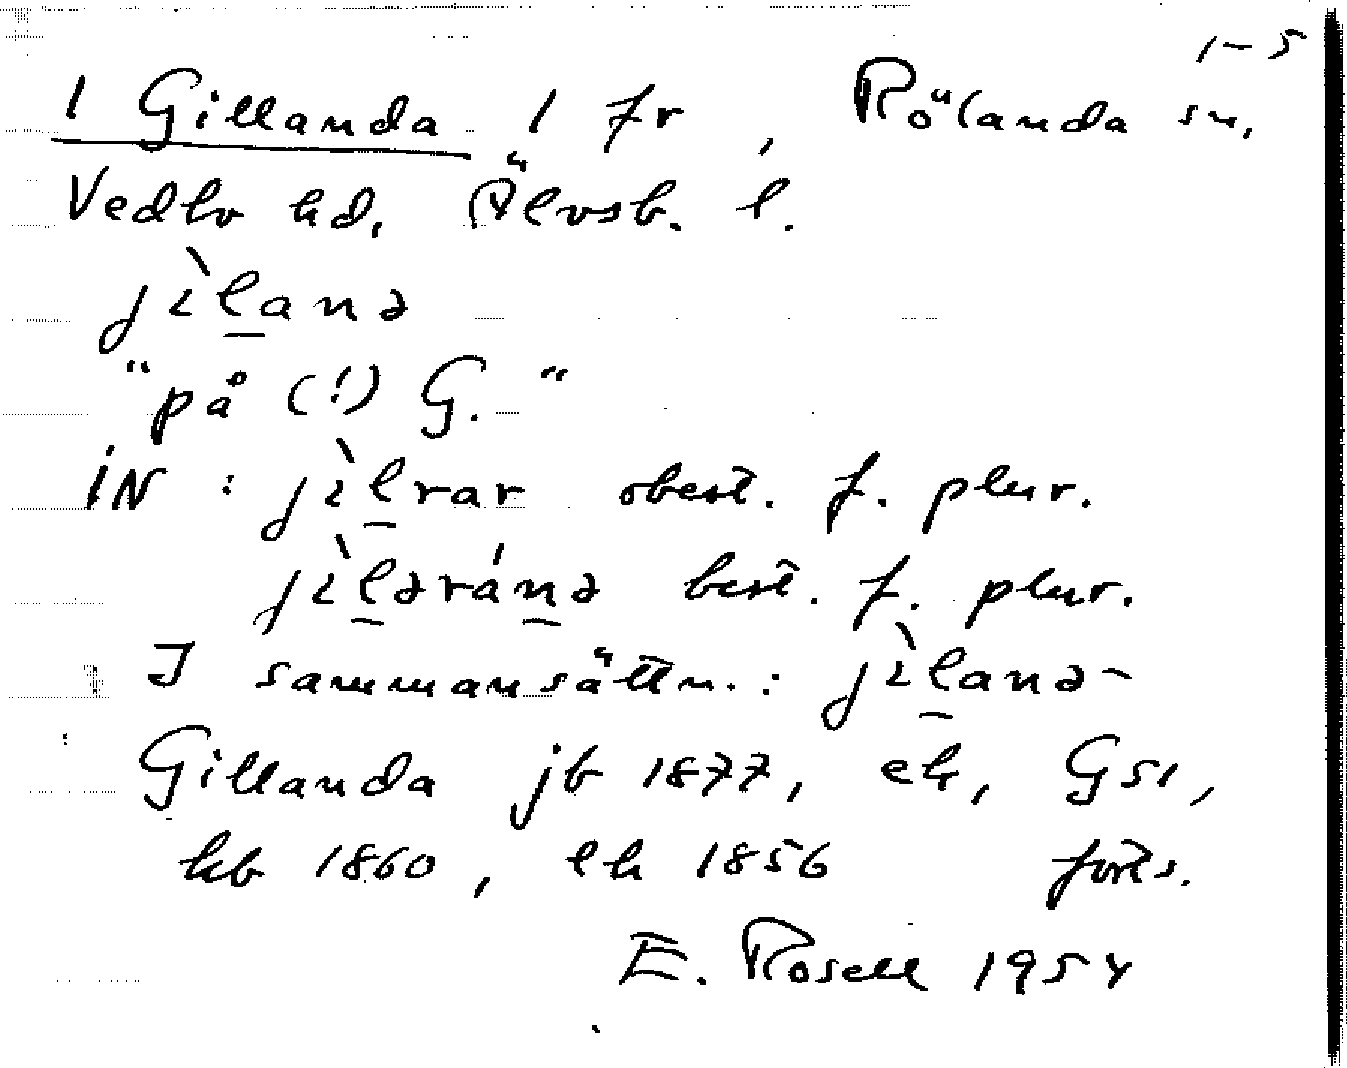 1-5
1 Gillanda 1 fr, Rölanda sn,
Vedbo hd, Älvsb. l.
jìlanə
"på (!) G."
iN: jìlrar obest. f. plur.
jìləránə best. f. plur.
I sammansättn.: jìlanə-
Gillanda jb 1877, ek, GS1,
hb 1860, lh 1856 forts.
E. Rosell 1954